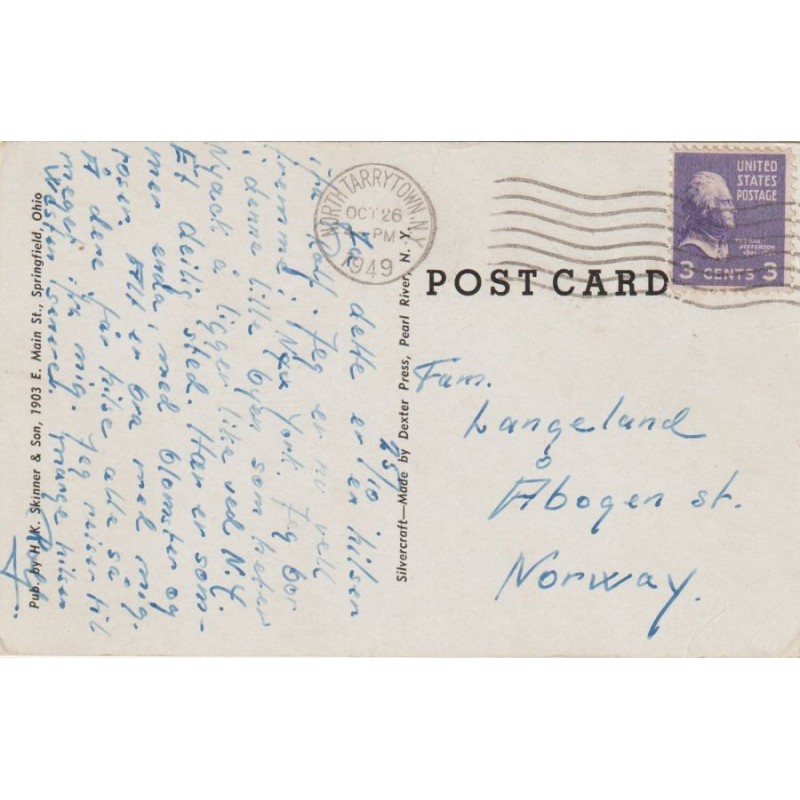 25/10
Ja dette er en hilsen
ifra Rolf. Jeg er nu vell
fremme i New York. Jeg bor
i denne lille byen som heter
Nyack å ligger like ved N.Y.
Et deilig sted. Har er som-
mer enda, med blomster og
roser. Alt er bra med mig.
Å dere får hilse alle så
meget ifra mig. Jeg reiser til
Westen senere. Mange hilsen
Rolf
NORTH TARRYTOWN, N.Y.
OCT 26
PM
1949
UNITED
STATES
POSTAGE
THOMAS
JEFFERSON
3 CENTS 3
POST CARD
Fam.
Langeland
Åbogen st.
Norway.
Silvercraft—Made by Dexter Press, Pearl River, N. Y.
Pub. by H. K. Skinner & Son, 1903 E. Main St., Springfield, Ohio